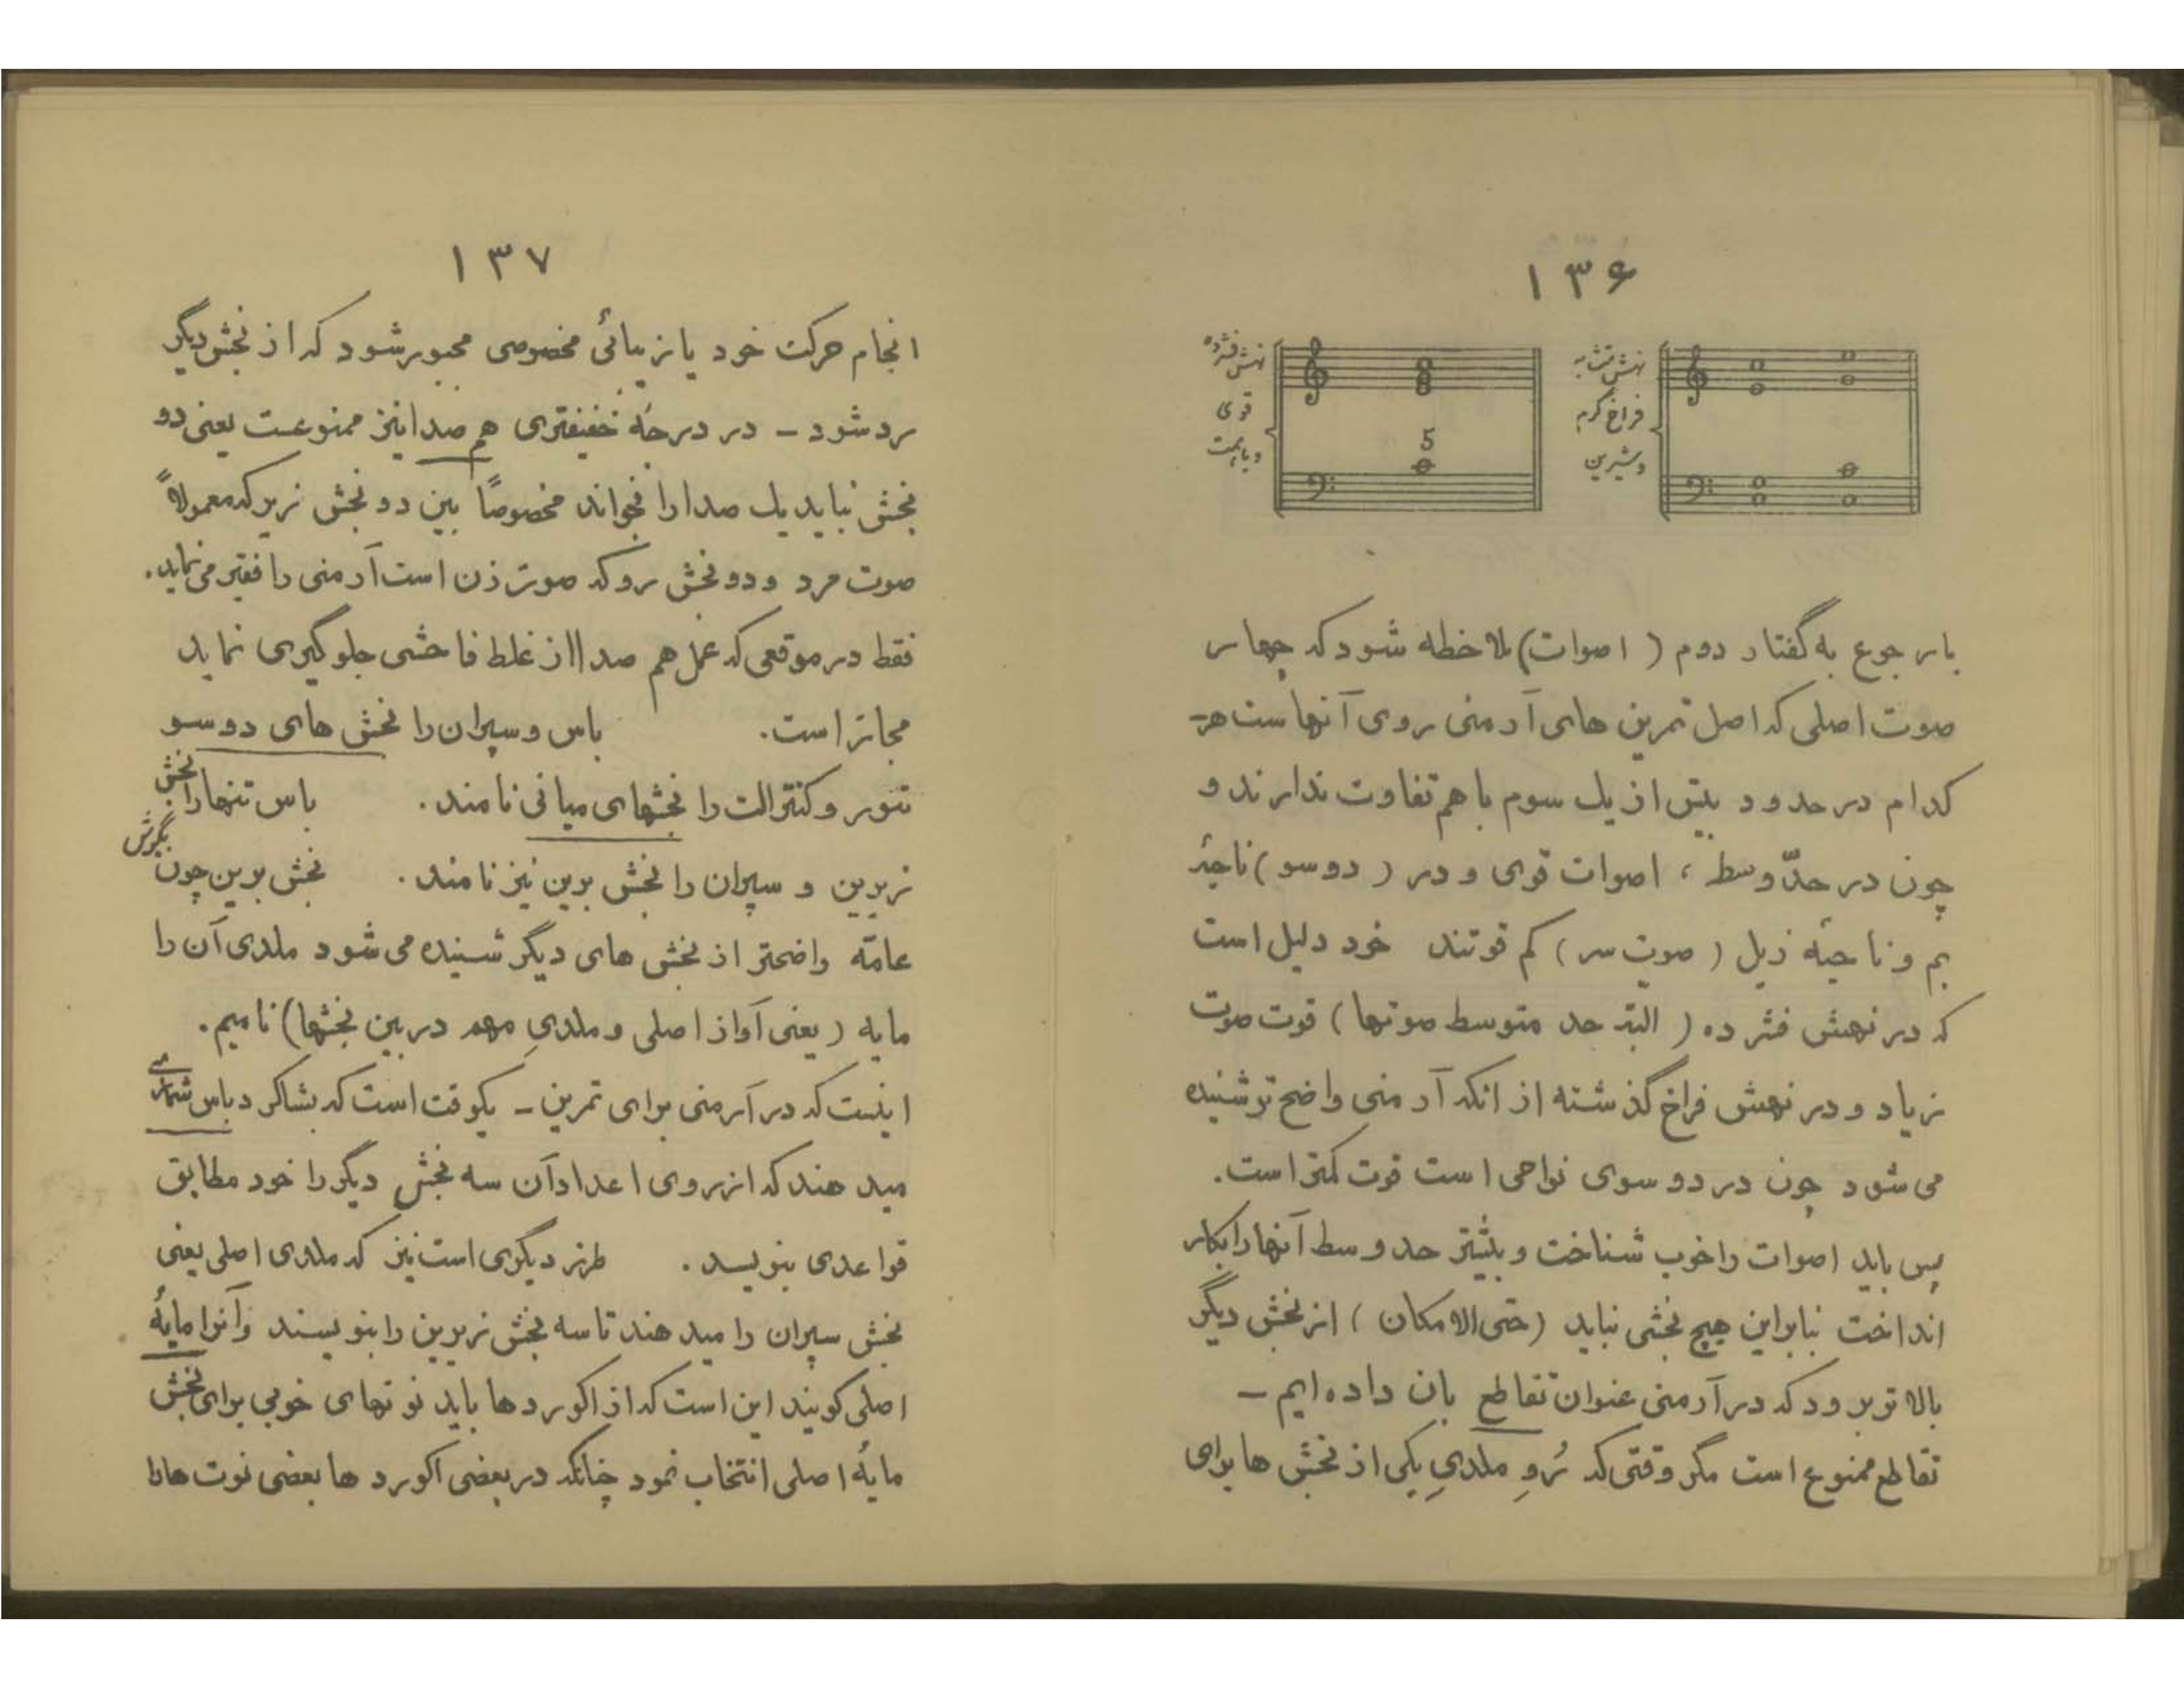 ۱۳۶
نهش
فراخ گرم
و شیرین
نهش فشرده
قوی
5
با رجوع به گفتار دوم (اصوات) ملاحظه شود که چهار
صوت اصلی که اصل تمرین های آرمنی روی آنهاست هر
کدام در حدود بیش از یک سوم با هم تفاوت ندارند و
چون در حدّ وسط ، اصوات قوی و در (دوسو) ناحیهٔ
بم و ناحیهٔ زیل (صوت سر) کم قوتند خود دلیل است
که در نهش فشرده (البته حد متوسط صوتها) قوت صوت
زیاد و در نهش فراخ گذشته از انکه آرمنی واضح تر شنیده
می شود چون در دو سوی نواحی است قوت کمتر است.
پس باید اصوات را خوب شناخت و بیشتر حد وسط آنها را بکار
انداخت بنابراین هیچ بخشی نباید (حتی الامکان) از بخش دیگر
بالا تر برود که در آرمنی عنوان تقاطع بان داده ایم –
تقاطع ممنوع است مگر وقتی که رُوِ ملدیِ یکی از بخش ها برای
۱۳۷
انجام حرکت خود یا زیبائی مخصوصی مجبور شود که از بخش دیگر
رد شود – در درجهٔ خفیفتری هم صدا نیز ممنوعست یعنی دو
بخش نباید یک صدا را بخواند مخصوصاً بین دو بخش زیر که معمولاً
صوت مرد و دو بخش رو که صوت زن است آرمنی را فقیر می نماید.
فقط در موقعی که عمل هم صدا از غلط فاحشی جلو گیری نماید
مجاز است. باس و سپران را بخش های دوسو
تنور و کنترالت را بخشهای میانی نامند. باس تنها را بخش
زیرین و سپران را بخش برین نیز نامند. بخش برین چون بگوش
عامّه واضحتر از بخش های دیگر شنیده می شود ملدی آن را
مایه (یعنی آواز اصلی و ملدیِ مهم در بین بخشها) نامیم.
اینست که در آرمنی برای تمرین – یکوقت است که بشاگرد باس شماری
میدهند که از روی اعداد آن سه بخش دیگر را خود مطابق
قواعدی بنویسد. طرز دیگری است نیز که ملدی اصلی یعنی
بخش سپران را میدهند تا سه بخش زیرین را بنویسند و آنرا مایهٔ
اصلی گویند این است که از اکورد ها باید نوتهای خوبی برای بخش
مایهٔ اصلی انتخاب نمود چنانکه در بعضی اکورد ها بعضی نوت ها را